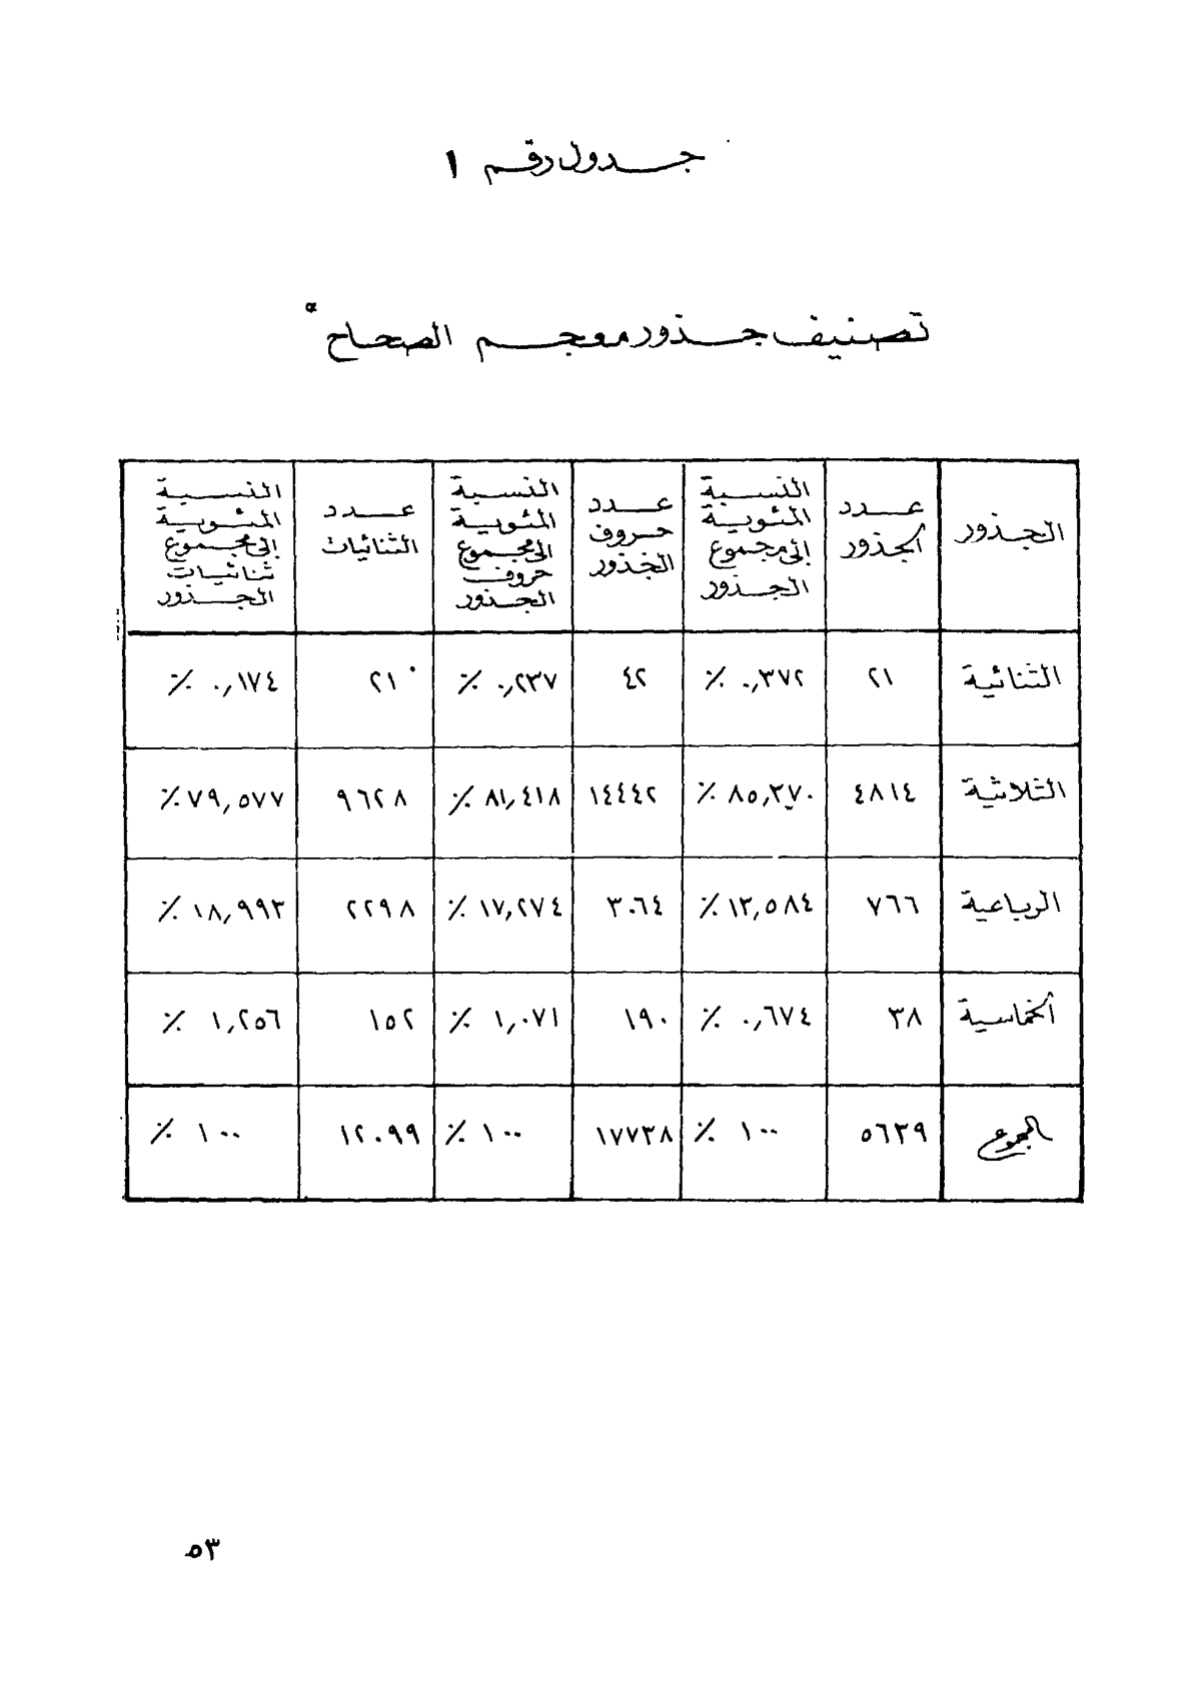 جدول رقم ١
تصنيف جذور معجم الصحاح*
الجذور | عدد الجذور | النسبة المئوية إلى مجموع الجذور | عدد حروف الجذور | النسبة المئوية الى مجموع حروف الجذور | عدد الثنائيات | النسبة المئوية إلى مجموع ثنائيات الجذور
الثنائية | ٢١ | ٠,٣٧٢ ٪ | ٤٢ | ٠,٢٣٧ ٪ | ٢١ | ٠,١٧٤ ٪
الثلاثية | ٤٨١٤ | ٨٥,٣٧٠ ٪ | ١٤٤٤٢ | ٨١,٤١٨ ٪ | ٩٦٢٨ | ٧٩,٥٧٧ ٪
الرباعية | ٧٦٦ | ١٣,٥٨٤ ٪ | ٣٠٦٤ | ١٧,٢٧٤ ٪ | ٢٢٩٨ | ١٨,٩٩٣ ٪
الخماسية | ٣٨ | ٠,٦٧٤ ٪ | ١٩٠ | ١,٠٧١ ٪ | ١٥٢ | ١,٢٥٦ ٪
المجموع | ٥٦٣٩ | ١٠٠ ٪ | ١٧٧٣٨ | ١٠٠ ٪ | ١٢٠٩٩ | ١٠٠ ٪
٥٣